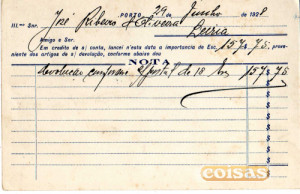 PORTO, 29 Junho 1928
Ill.mo Snr. José Ribeiro d'Oliveira
Leiria
Amigo e Snr.
Em credito de s| conta, lancei n'esta data a importancia de Esc. 157$75, prove-
niente dos artigos de s| devolução, conforme abaixo dou
NOTA
devolução conforme s/postal de 18 157$75
$
$
$
$
$
coisas